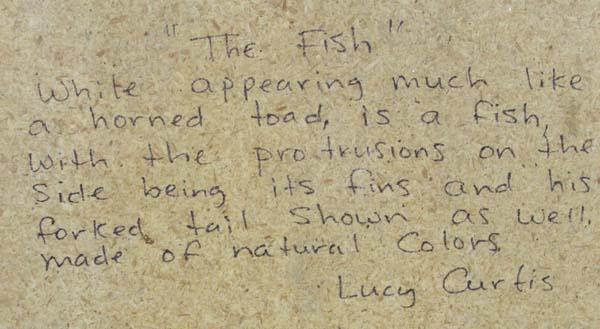 "The Fish"
While appearing much like
a horned toad, is a fish,
with the protrusions on the
side being its fins and his
forked tail shown as well.
made of natural Colors
Lucy Curtis